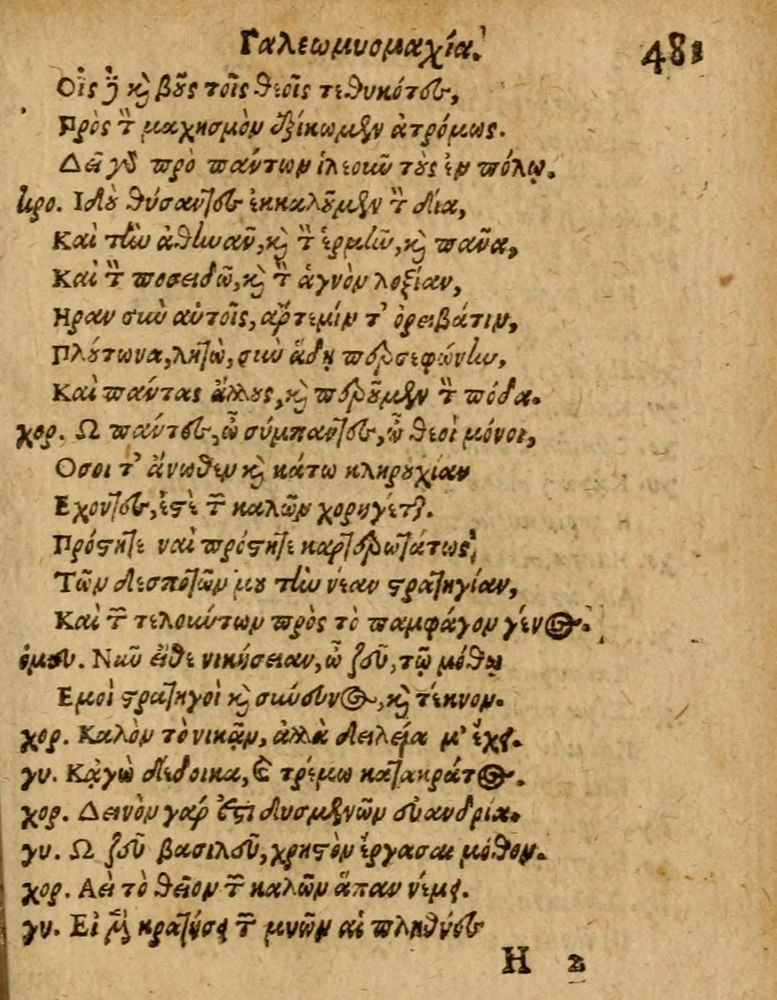 Γαλεωμυομαχία. 481
Οἷς ἢ καὶ βοῦς τοῖς θεοῖς τεθυκότες,
Πρὸς τὸν μαχησμὸν ἐξίκωμεν ἀτρόμως.
Δεῖ γὸ πρὸ πάντων ἱλεοῦν τοὺς ἐν πόλῳ.
κρο. Ιδοὺ θύσαντες ἐκκαλοῦμεν τὸν δία,
Καὶ τὴν ἀθηνᾶν, καὶ τὸν ἑρμῆν, καὶ πᾶνα,
Καὶ τὸν ποσειδῶ, καὶ τὸν ἁγνὸν λοξίαν,
Ηραν σὺν αὐτοῖς, ἄρτεμίν τ' ὀρειβάτιν,
Πλούτωνα, λητὼ, σὺν ἅδῃ περσεφώνην,
Καὶ πάντας ἄλλους, καὶ περοῦμεν τὸν πόδα.
χορ. Ω πάντες, ὦ σύμπαντες, ὦ θεοὶ μόνοι,
Οσοι τ' ἄνωθεν καὶ κάτω κληρουχίαν
Εχοντες, ἐστὲ τῶν καλῶν χορηγέται.
Πρόστητε ναὶ πρόστητε καρτερωτάτως,
Τῶν δεσποτῶν μου τὴν νέαν στρατηγίαν,
Καὶ τῶν τελούντων πρὸς τὸ παμφάγον γένος.
ὁμου. Ναῦ εἴθε νικήσειαν, ὦ ζεῦ, τῷ μόθῳ
Εμοὶ στρατηγοὶ καὶ σύνευνος, καὶ τέκνον.
χορ. Καλὸν τὸ νικᾷν, ἀλλὰ δειλεία μ' ἔχει.
γυ. Κᾀγὼ δέδοικα, καὶ τρέμω κατακράτος.
χορ. Δεινὸν γάρ ἐστι δυσμενῶν εὐανδρία.
γυ. Ω ζεῦ βασιλεῦ, χρηστὸν ἔργασαι μόθον.
χορ. Αεὶ τὸ θεῖον τῶν καλῶν ἅπαν νέμει.
γυ. Εἰ μὲν κρατήσει τῶν μυῶν αἱ πληθύες
Η 2